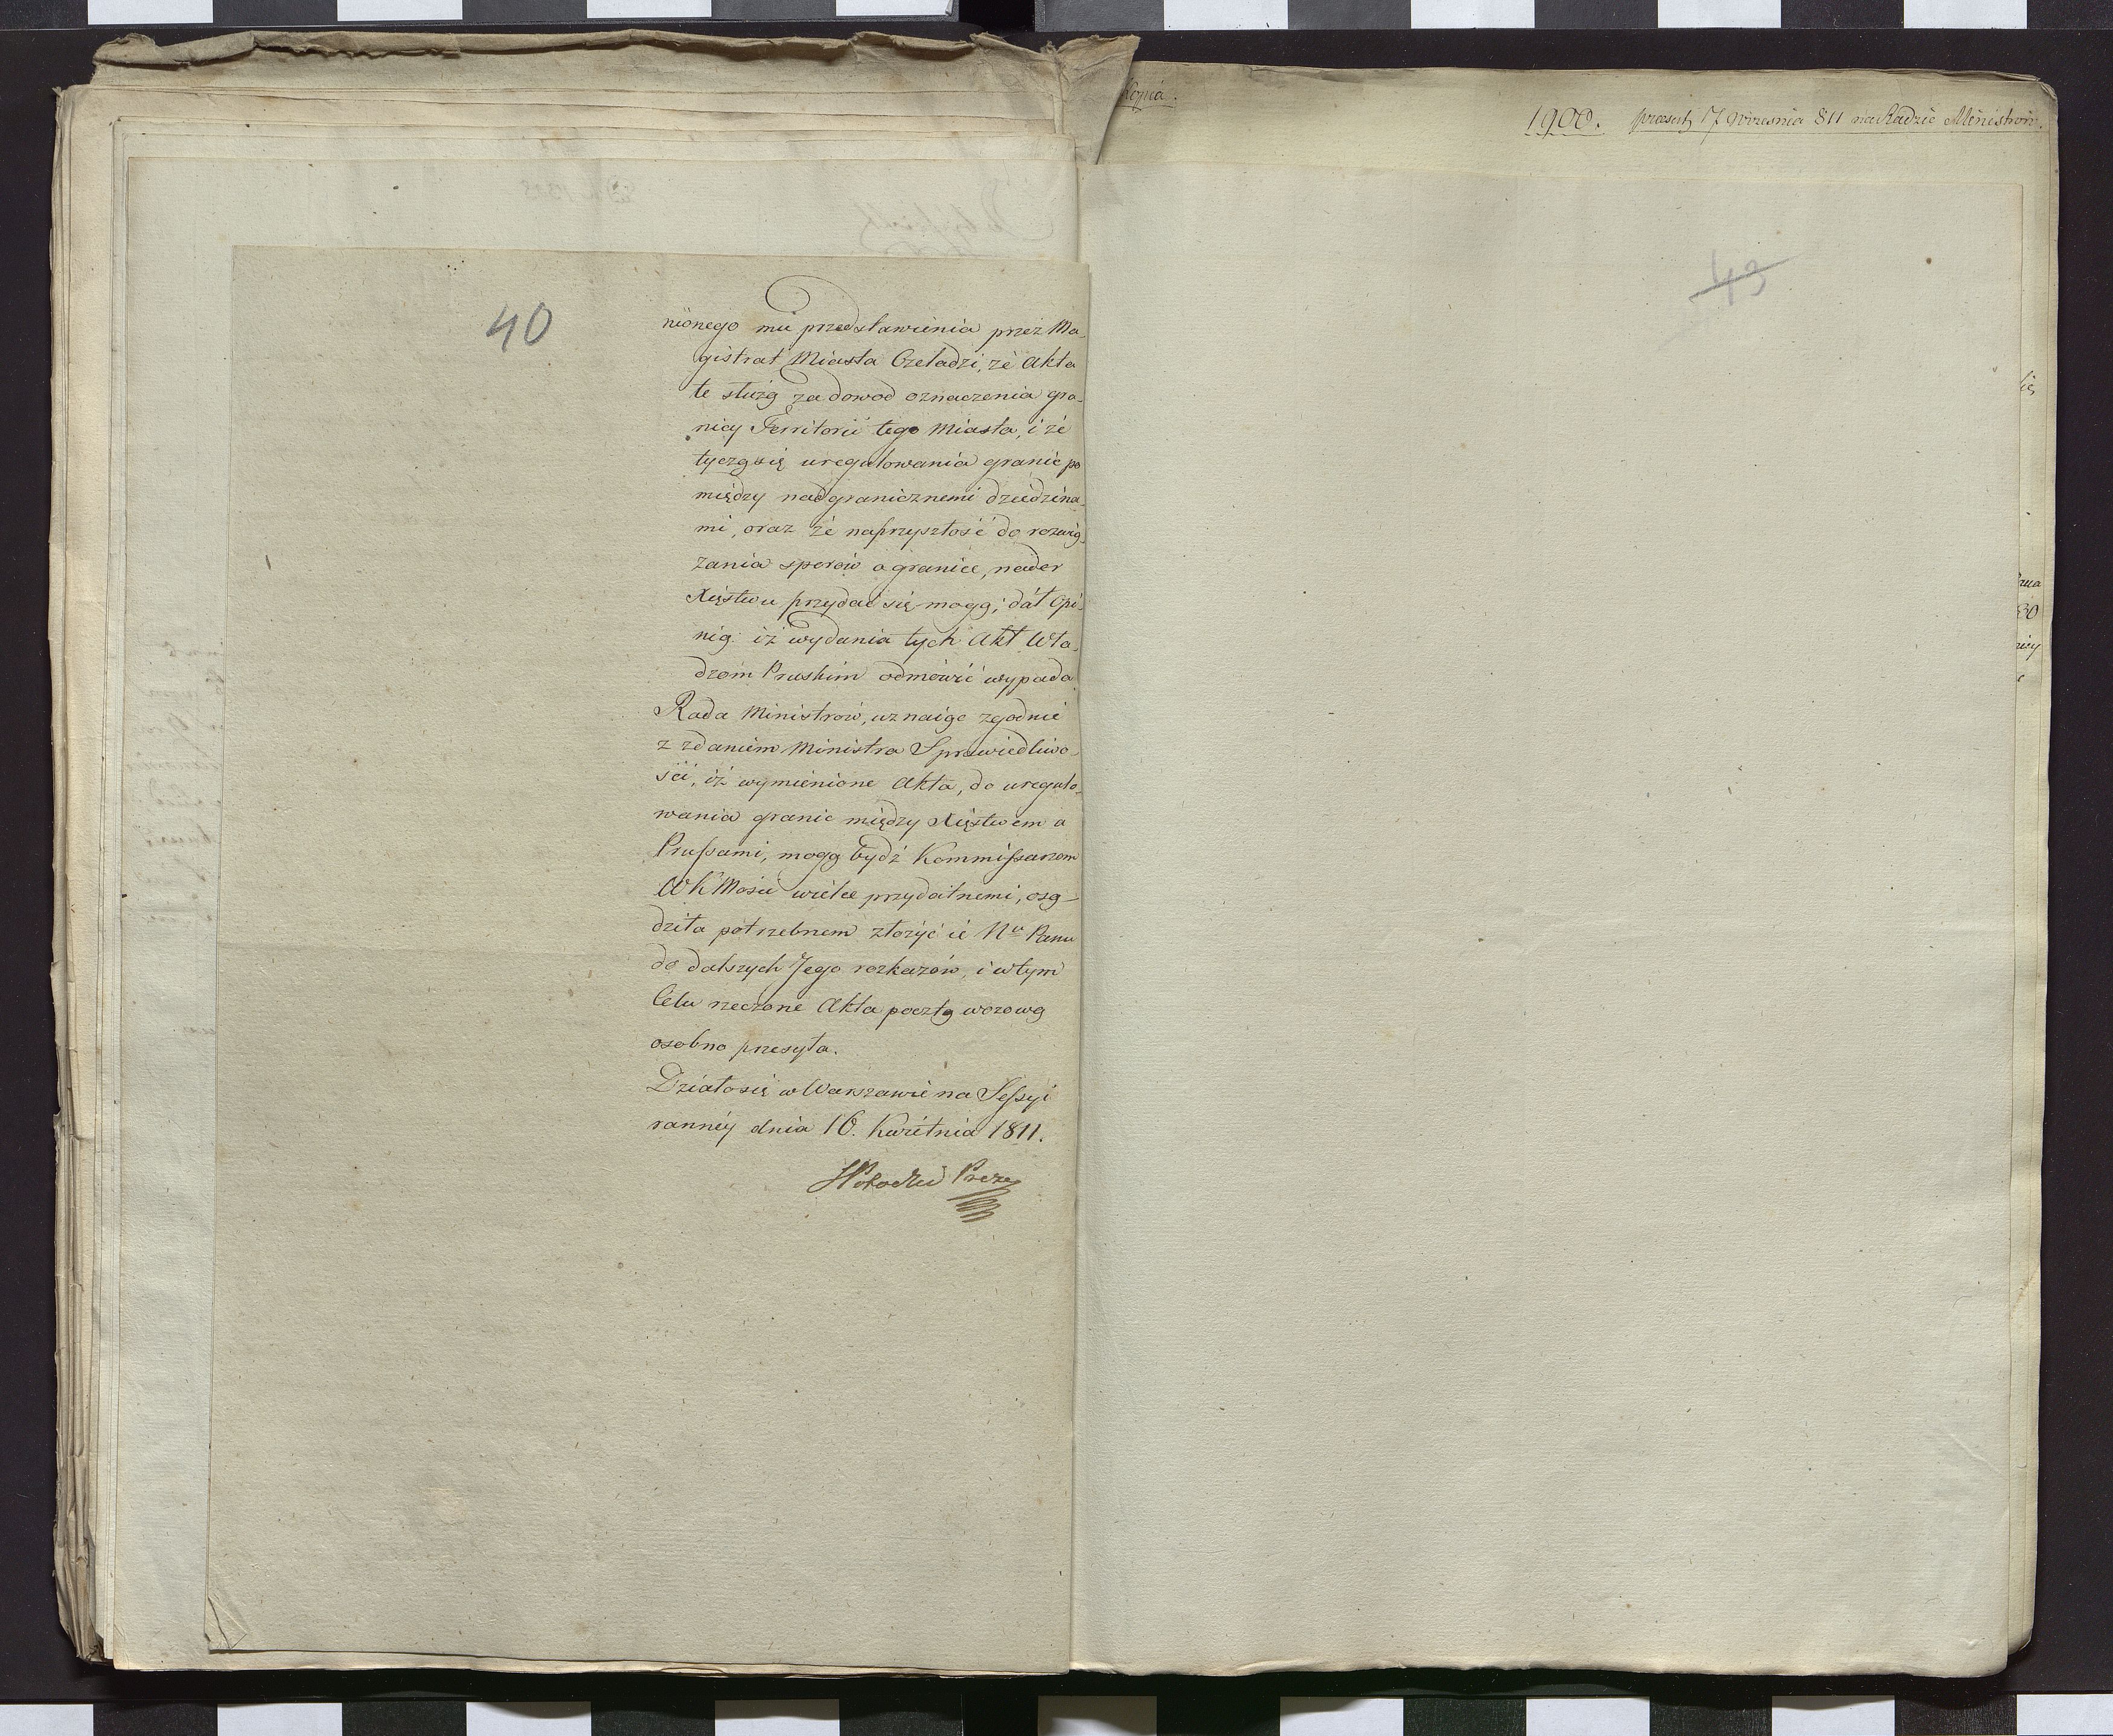 40
nionego mu przedstawienia przez Ma-
gistrat Miasta Czeladzi, że Akta
te służą za dowod oznaczenia gra-
nicy Territorii tego Miasta, i że
tyczą się uregulowania granic po
między nadgranicznemi dziedzina-
mi, oraz że naprzyszłość do rozwią-
zania sporów o granice, nader
Xięstwu przydać się mogą; dał Opi-
nią: iż wydania tych Akt Wła-
dzom Pruskim odmówić wypada.
Rada Ministrów, uznaiąc zgodnie
z zdaniem Ministra Sprawiedliwo-
ści, iż wymienione Akta, do uregulo-
wania granic między Xięstwem a
Prussami, mogą bydź Kommissarzom
WKMości wielce przydatnemi, osą-
dziła potrzebnem złożyć ie Nu Panu
do dalszych Jego rozkazów, i w tym
Celu rzeczone Akta pocztą wozową
osobno przesyła.
Działo się w Warszawie na Sessyi
ranney dnia 16. Kwietnia 1811.
SPotocki Prez
Kopia.
1900. praesent 17 Września 811 na Radzie Ministrów.
43